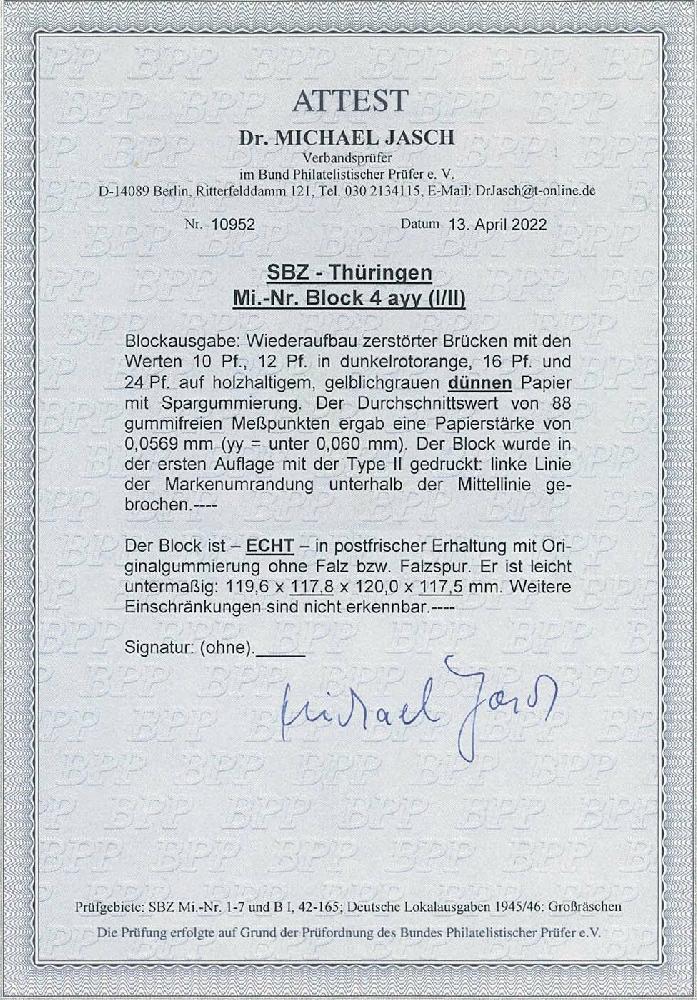 ATTEST
Dr. MICHAEL JASCH
Verbandsprüfer
im Bund Philatelistischer Prüfer e. V.
D-14089 Berlin, Ritterfelddamm 121, Tel. 030 2134115, E-Mail: DrJasch@t-online.de
Nr. 10952 Datum 13. April 2022
SBZ - Thüringen
Mi.-Nr. Block 4 ayy (I/II)
Blockausgabe: Wiederaufbau zerstörter Brücken mit den
Werten 10 Pf., 12 Pf. in dunkelrotorange, 16 Pf. und
24 Pf. auf holzhaltigem, gelblichgrauen dünnen Papier
mit Spargummierung. Der Durchschnittswert von 88
gummifreien Meßpunkten ergab eine Papierstärke von
0,0569 mm (yy = unter 0,060 mm). Der Block wurde in
der ersten Auflage mit der Type II gedruckt: linke Linie
der Markenumrandung unterhalb der Mittellinie ge-
brochen.----
Der Block ist – ECHT – in postfrischer Erhaltung mit Ori-
ginalgummierung ohne Falz bzw. Falzspur. Er ist leicht
untermaßig: 119,6 x 117,8 x 120,0 x 117,5 mm. Weitere
Einschränkungen sind nicht erkennbar.----
Signatur: (ohne).
Michael Jasch
Prüfgebiete: SBZ Mi.-Nr. 1-7 und B I, 42-165; Deutsche Lokalausgaben 1945/46: Großräschen
Die Prüfung erfolgte auf Grund der Prüfordnung des Bundes Philatelistischer Prüfer e.V.